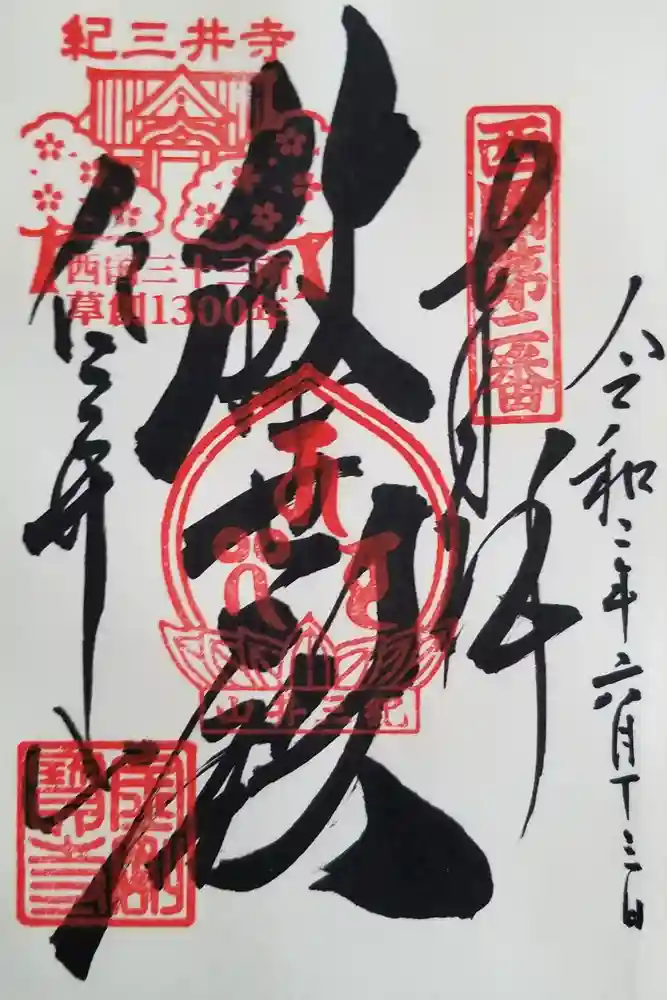 令和二年六月十三日
奉拝
西国第二番
救世殿
山井三紀
紀三井寺
西国三十三所
草創1300年
紀三井寺
金剛寶寺